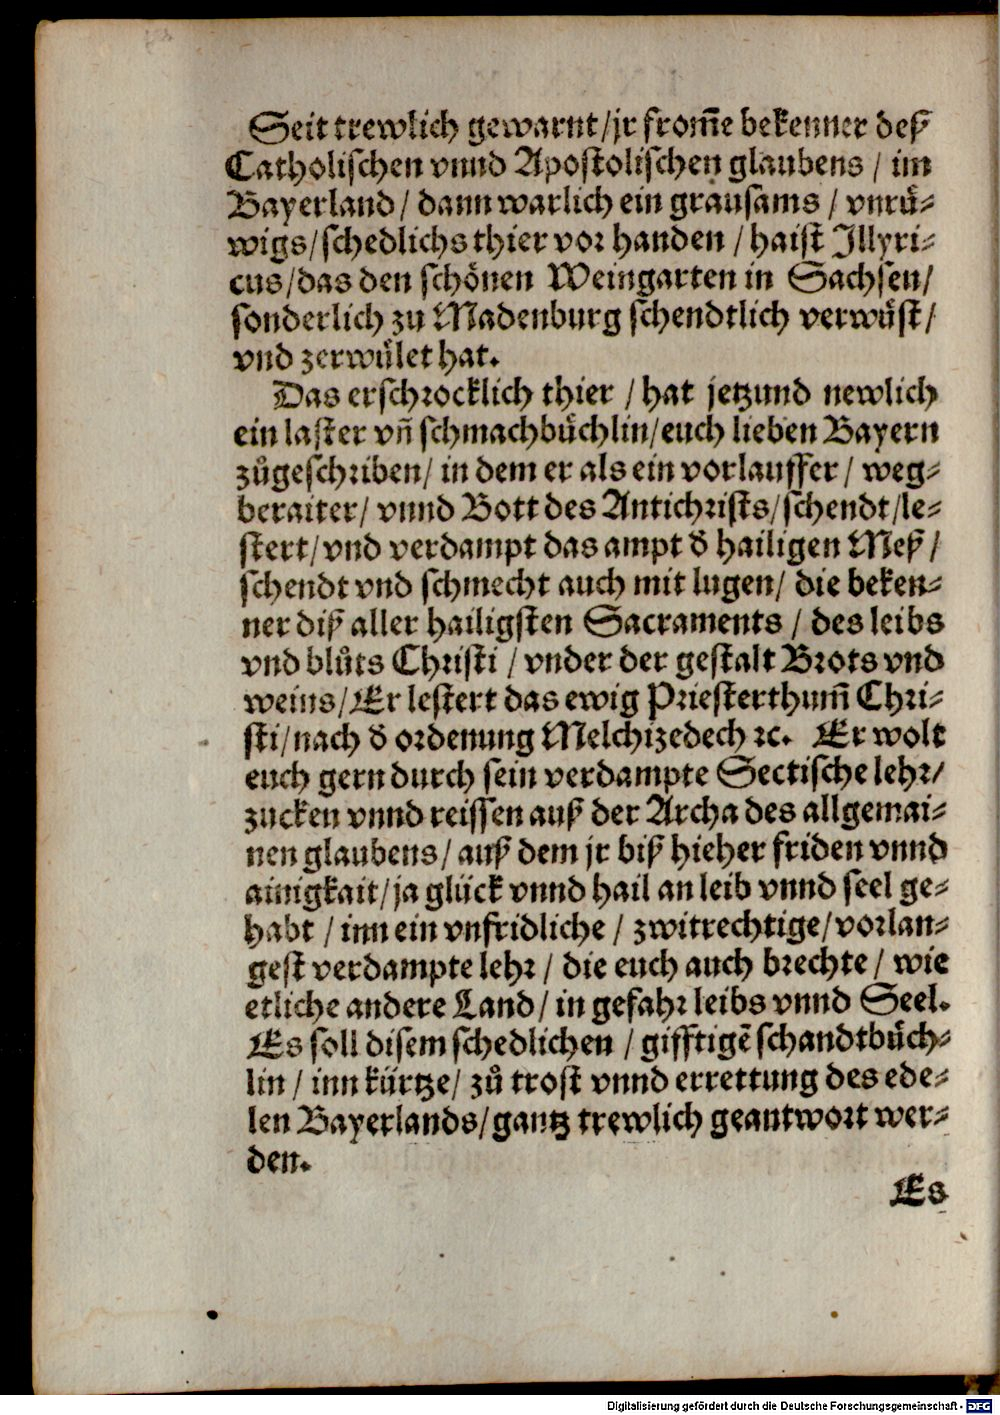 Seit trewlich gewarnt/jr from̃e bekenner deß
Catholischen vnnd Apostolischen glaubens / im
Bayerland/ dann warlich ein grausams / vnrů-
wigs/schedlichs thier vor handen /haist Illyri-
cus/das den schönen Weingarten in Sachsen/
sonderlich zu Madenburg schendtlich verwůst/
vnd zerwůlet hat.
Das erschrocklich thier / hat jetzund newlich
ein laster vñ schmachbůchlin/euch lieben Bayern
zůgeschriben/ in dem er als ein vorlauffer/ weg-
beraiter/ vnnd Bott des Antichrists/schendt/le-
stert/vnd verdampt das ampt d̕ hailigen Meß/
schendt vnd schmecht auch mit lugen/ die beken-
ner diß aller hailigsten Sacraments / des leibs
vnd blůts Christi / vnder der gestalt Brots vnd
weins/Er lestert das ewig Priesterthum̃ Chri-
sti/nach d̕ ordenung Melchizedech ꝛc. Er wolt
euch gern durch sein verdampte Sectische lehr/
zucken vnnd reissen auß der Archa des allgemai-
nen glaubens/ auß dem jr biß hieher friden vnnd
ainigkait/ja glück vnnd hail an leib vnnd seel ge-
habt / inn ein vnfridliche / zwitrechtige/vorlan-
gest verdampte lehr/ die euch auch brechte/ wie
etliche andere Land/ in gefahr leibs vnnd Seel.
Es soll disem schedlichen / gifftigẽ schandtbůch-
lin / inn kürtze/ zů trost vnnd errettung des ede-
len Bayerlands/gantz trewlich geantwort wer-
den.
Es
Digitalisierung gefördert durch die Deutsche Forschungsgemeinschaft - DFG